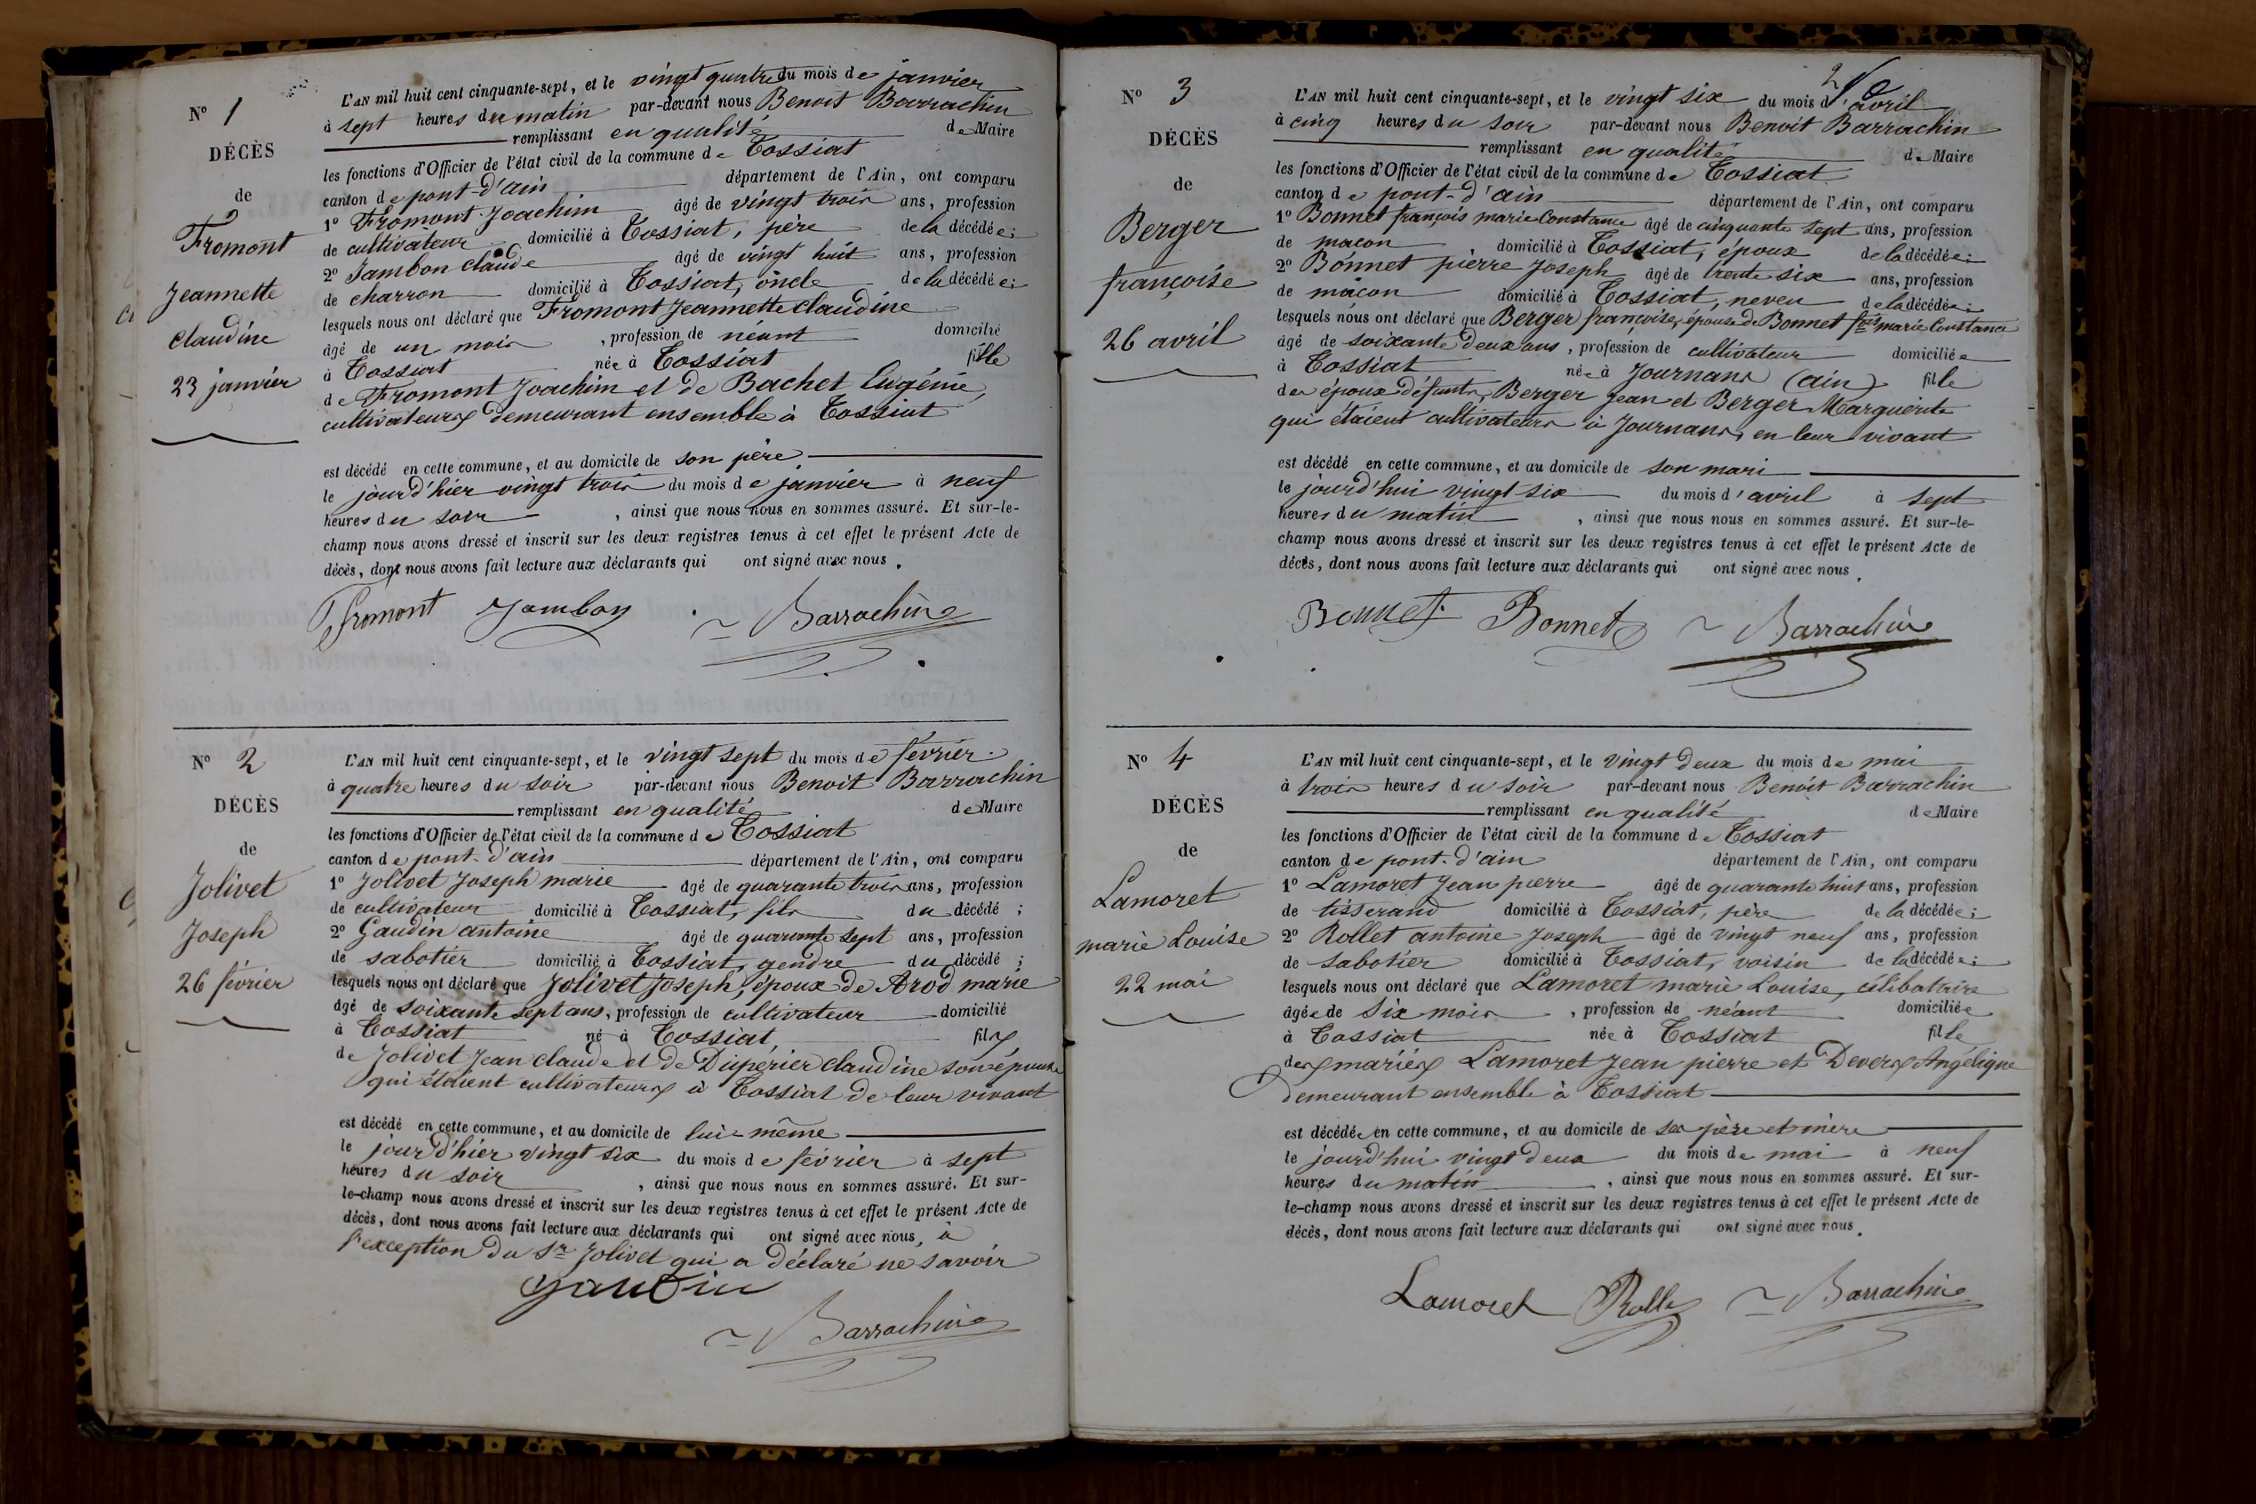 N° 1
DÉCÈS
de
Fromont
Jeannette
Claudine
23 janvier
L'AN mil huit cent cinquante-sept, et le vingt quatre du mois de janvier
à sept heures du matin par-devant nous Benoit Barrachin
remplissant en qualité de Maire
les fonctions d'Officier de l'état civil de la commune de Tossiat
canton de pont-d'ain département de l'Ain, ont comparu
1° Fromont Joachim âgé de vingt trois ans, profession
de cultivateur domicilié à Tossiat, père de la décédée;
2° Jambon Claude âgé de vingt huit ans, profession
de charron domicilié à Tossiat, oncle de la décédée;
lesquels nous ont déclaré que Fromont Jeannette Claudine
âgé de un mois, profession de néant domicilié
à Tossiat née à Tossiat fille
de Fromont Joachim et de Bachet Eugénie,
cultivateurs demeurant ensemble à Tossiat
est décédé en cette commune, et au domicile de son père
le jour d'hier vingt trois du mois de janvier à neuf
heures du soir, ainsi que nous nous en sommes assuré. Et sur-le-
champ nous avons dressé et inscrit sur les deux registres tenus à cet effet le présent Acte de
décès, dont nous avons fait lecture aux déclarants qui ont signé avec nous.
Fromont Jambon Barrachin
N° 2
DÉCÈS
de
Jolivet
Joseph
26 février
L'AN mil huit cent cinquante-sept, et le vingt sept du mois de février
à quatre heures du soir par-devant nous Benoit Barrachin
remplissant en qualité de Maire
les fonctions d'Officier de l'état civil de la commune de Tossiat
canton de pont-d'ain département de l'Ain, ont comparu
1° Jolivet Joseph marie âgé de quarante trois ans, profession
de cultivateur domicilié à Tossiat, fils du décédé;
2° Gaudin antoine âgé de quarante sept ans, profession
de sabotier domicilié à Tossiat, gendre du décédé;
lesquels nous ont déclaré que Jolivet Joseph, époux de Arod marie
âgé de soixante sept ans, profession de cultivateur domicilié
à Tossiat né à Tossiat fils
de Jolivet Jean Claude et de Dupérier Claudine son épouse
qui étaient cultivateurs à Tossiat de leur vivant
est décédé en cette commune, et au domicile de lui-même
le jour d'hier vingt six du mois de février à sept
heures du soir, ainsi que nous nous en sommes assuré. Et sur-
le-champ nous avons dressé et inscrit sur les deux registres tenus à cet effet le présent Acte de
décès, dont nous avons fait lecture aux déclarants qui ont signé avec nous, à
l'exception du Sr Jolivet qui a déclaré ne savoir
Gaudin
Barrachin
2
N° 3
DÉCÈS
de
Berger
françoise
26 avril
L'AN mil huit cent cinquante-sept, et le vingt six du mois d'avril
à cinq heures du soir par-devant nous Benoit Barrachin
remplissant en qualité de Maire
les fonctions d'Officier de l'état civil de la commune de Tossiat
canton de pont-d'ain département de l'Ain, ont comparu
1° Bonnet françois marie Constance âgé de cinquante sept ans, profession
de maçon, domicilié à Tossiat, époux de la décédée;
2° Bonnet pierre Joseph âgé de trente six ans, profession
de maçon domicilié à Tossiat, neveu de la décédée;
lesquels nous ont déclaré que Berger françoise, épouse de Bonnet fçois marie Constance
âgé de soixante deux ans, profession de cultivateur domiciliée
à Tossiat née à Journans (ain) fille
des époux défunts, Berger Jean et Berger Marguerite
qui étaient cultivateurs à Journans, en leur vivant
est décédé en cette commune, et au domicile de son mari
le jour d'hui vingt six du mois d'avril à sept
heures du matin, ainsi que nous nous en sommes assuré. Et sur-le-
champ nous avons dressé et inscrit sur les deux registres tenus à cet effet le présent Acte de
décès, dont nous avons fait lecture aux déclarants qui ont signé avec nous.
Bonnet Bonnet Barrachin
N° 4
DÉCÈS
de
Lamoret
marie Louise
22 mai
L'AN mil huit cent cinquante-sept, et le vingt deux du mois de mai
à trois heures du soir par-devant nous Benoit Barrachin
remplissant en qualité de Maire
les fonctions d'Officier de l'état civil de la commune de Tossiat
canton de pont-d'ain département de l'Ain, ont comparu
1° Lamoret Jean pierre âgé de quarante huit ans, profession
de tisserand domicilié à Tossiat, père de la décédée;
2° Rollet antoine Joseph âgé de vingt neuf ans, profession
de sabotier domicilié à Tossiat, voisin de la décédée;
lesquels nous ont déclaré que Lamoret marie Louise, célibataire
âgée de six mois, profession de néant domiciliée
à Tossiat née à Tossiat fille
des mariés Lamoret Jean pierre et Devers Angélique
demeurant ensemble à Tossiat
est décédée en cette commune, et au domicile de ses père et mère
le jour d'hui vingt deux du mois de mai à neuf
heures du matin, ainsi que nous nous en sommes assuré. Et sur-
le-champ nous avons dressé et inscrit sur les deux registres tenus à cet effet le présent Acte de
décès, dont nous avons fait lecture aux déclarants qui ont signé avec nous.
Lamoret Rollet Barrachin